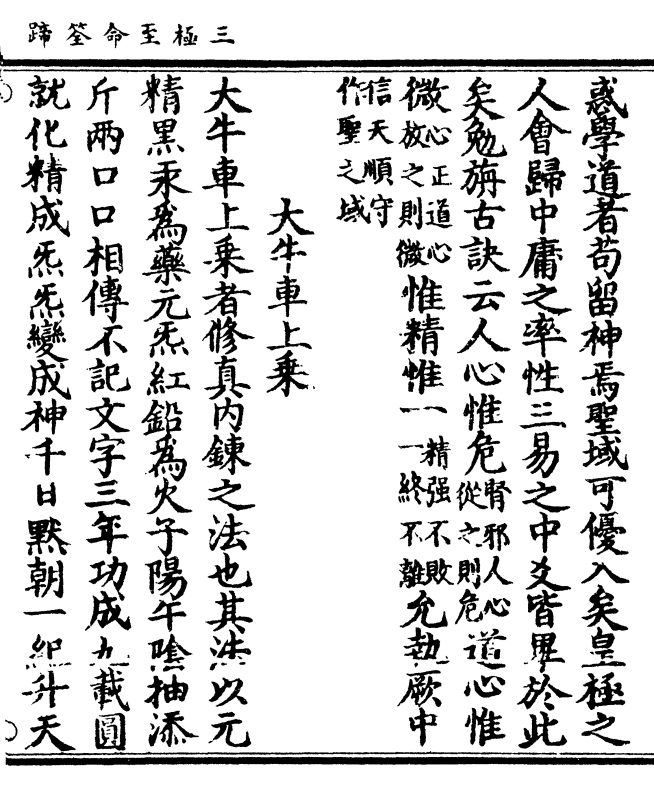 三極至命筌蹄
惑學道者苟留神焉聖域可優入矣皇極之
人會歸中庸之率性三易之中爻皆畢於此
矣勉旃古訣云人心惟危腎邪人心從之則危道心惟
微心正道心放之則微惟精惟一精强不敗一終不離允執厥中
信天順守作聖之域
大牛車上乘
大牛車上乘者修真内鍊之法也其法以元
精黑汞爲藥元炁紅鉛爲火子陽午陰抽添
斤兩口口相傳不記文字三年功成九載圓
就化精成炁炁變成神千日默朝一紀升天